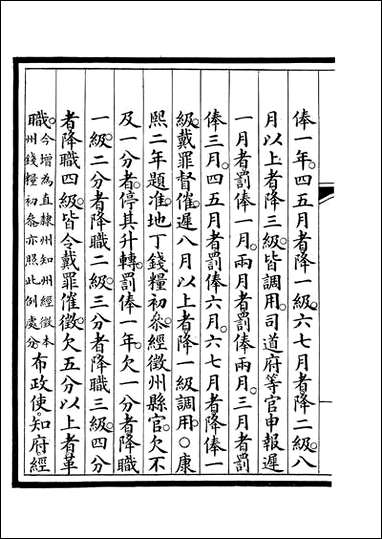 俸一年。四五月者降一級。六七月者降二級。八
月以上者降三級。皆調用。司道府等官申報遲
一月者罰俸一月。兩月者罰俸兩月。三月者罰
俸三月。四五月者罰俸六月。六七月者降俸一
級。戴罪督催。遲八月以上者降一級調用。○康
熙二年題准地丁錢糧初參。經徵州縣官。欠不
及一分者。停其升轉。罰俸一年。欠一分者降職
一級。二分者降職二級。三分者降職三級。四分
者降職四級。皆令戴罪催徵。欠五分以上者革
職。今增為直隸州知州經徵本州錢糧初參亦照此例處分布政使。知府。經